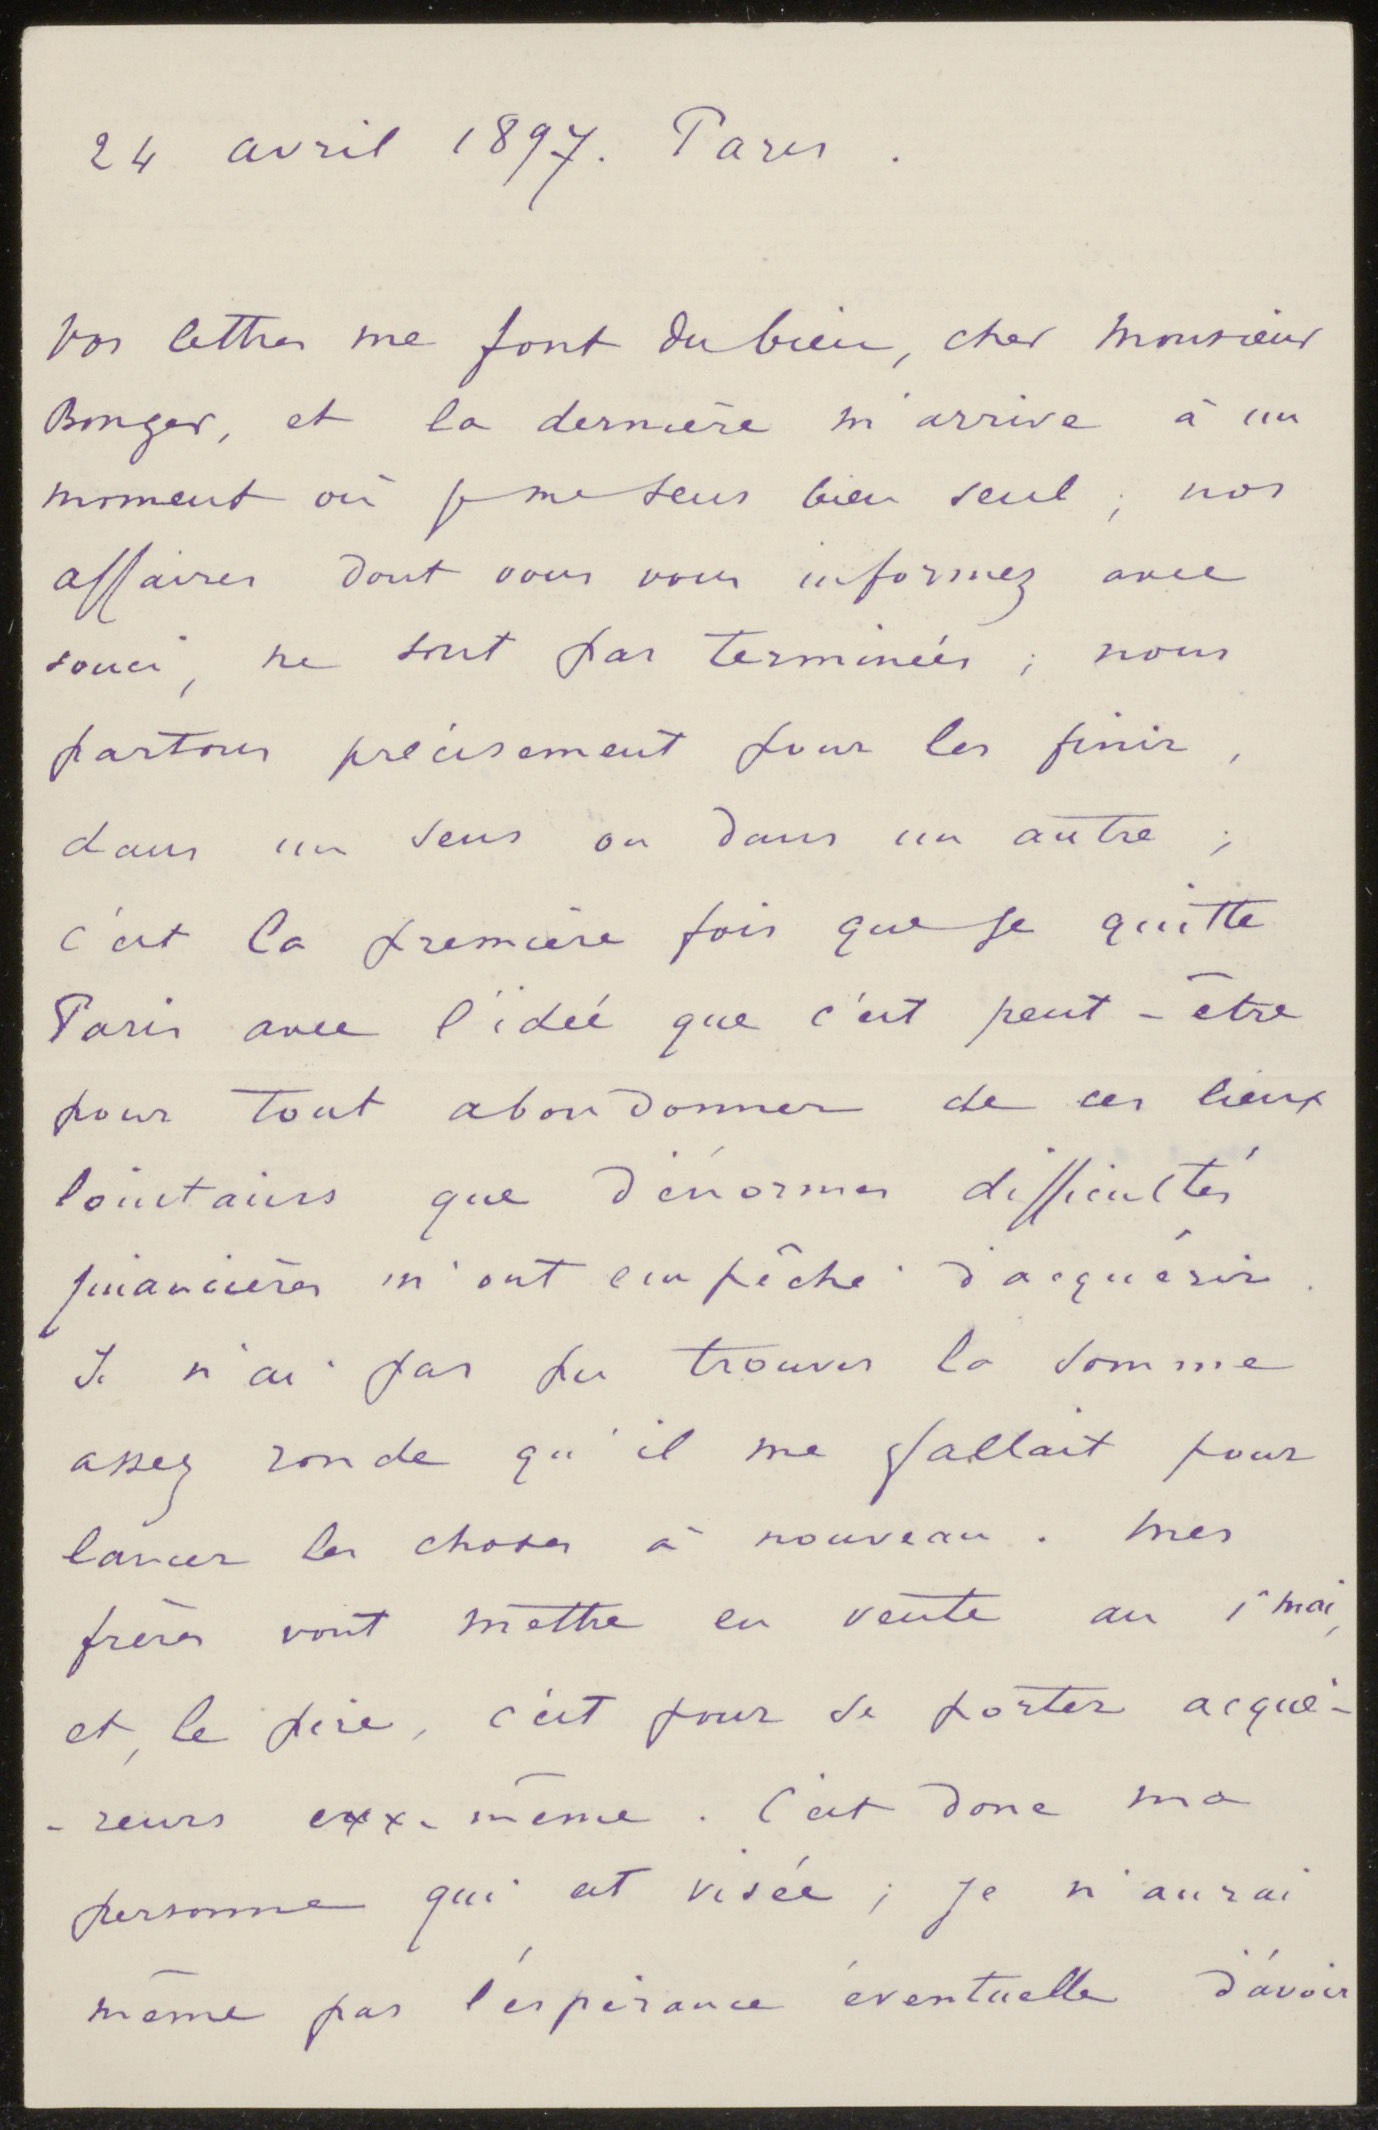 24 avril 1897. Paris.
Vos lettres me font du bien, cher Monsieur
Bonger, et la dernière m'arrive à un
moment où je me sens bien seul ; nos
affaires dont vous vous informez avec
souci, ne sont pas terminées ; nous
partons précisement pour les finir,
dans un sens ou dans un autre ;
c'est la première fois que je quitte
Paris avec l'idée que c'est peut-être
pour tout abondonner de ces lieux
lointains que d'énormes difficultés
financières m'ont empêché d'acquérir.
Je n'ai pas pu trouver la somme
assez ronde qu'il me fallait pour
lancer les choses à nouveau. Mes
frères vont mettre en vente au 1r mai,
et, le pire, c'est pour se porter acqué-
-reurs eux-même. C'est donc ma
personne qui est visée ; je n'aurai
même pas l'espérance éventuelle d'avoir